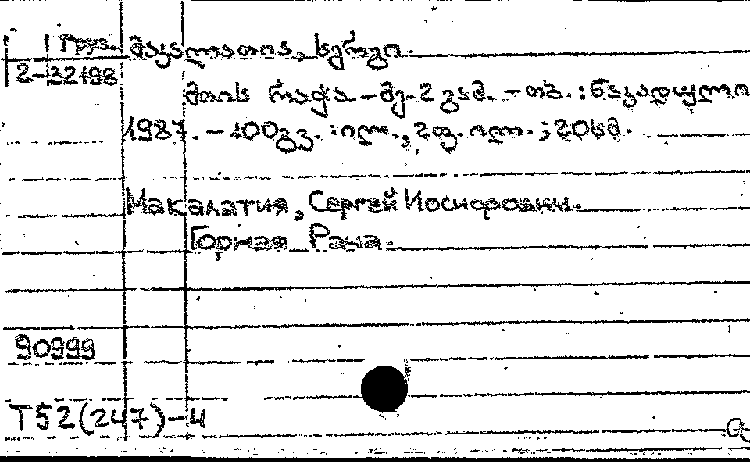 Груз. მაკალათია, სერგი.
2-32498
მთის რაჭა. - მე-2 გამ. - თბ. : ნაკადული
1987. - 100გვ. : ილ., 2ფ. ილ. ; 20სმ.
Макалатия, Сергей Иосифович.
Горная Рача.
90999
Т52(247)-4